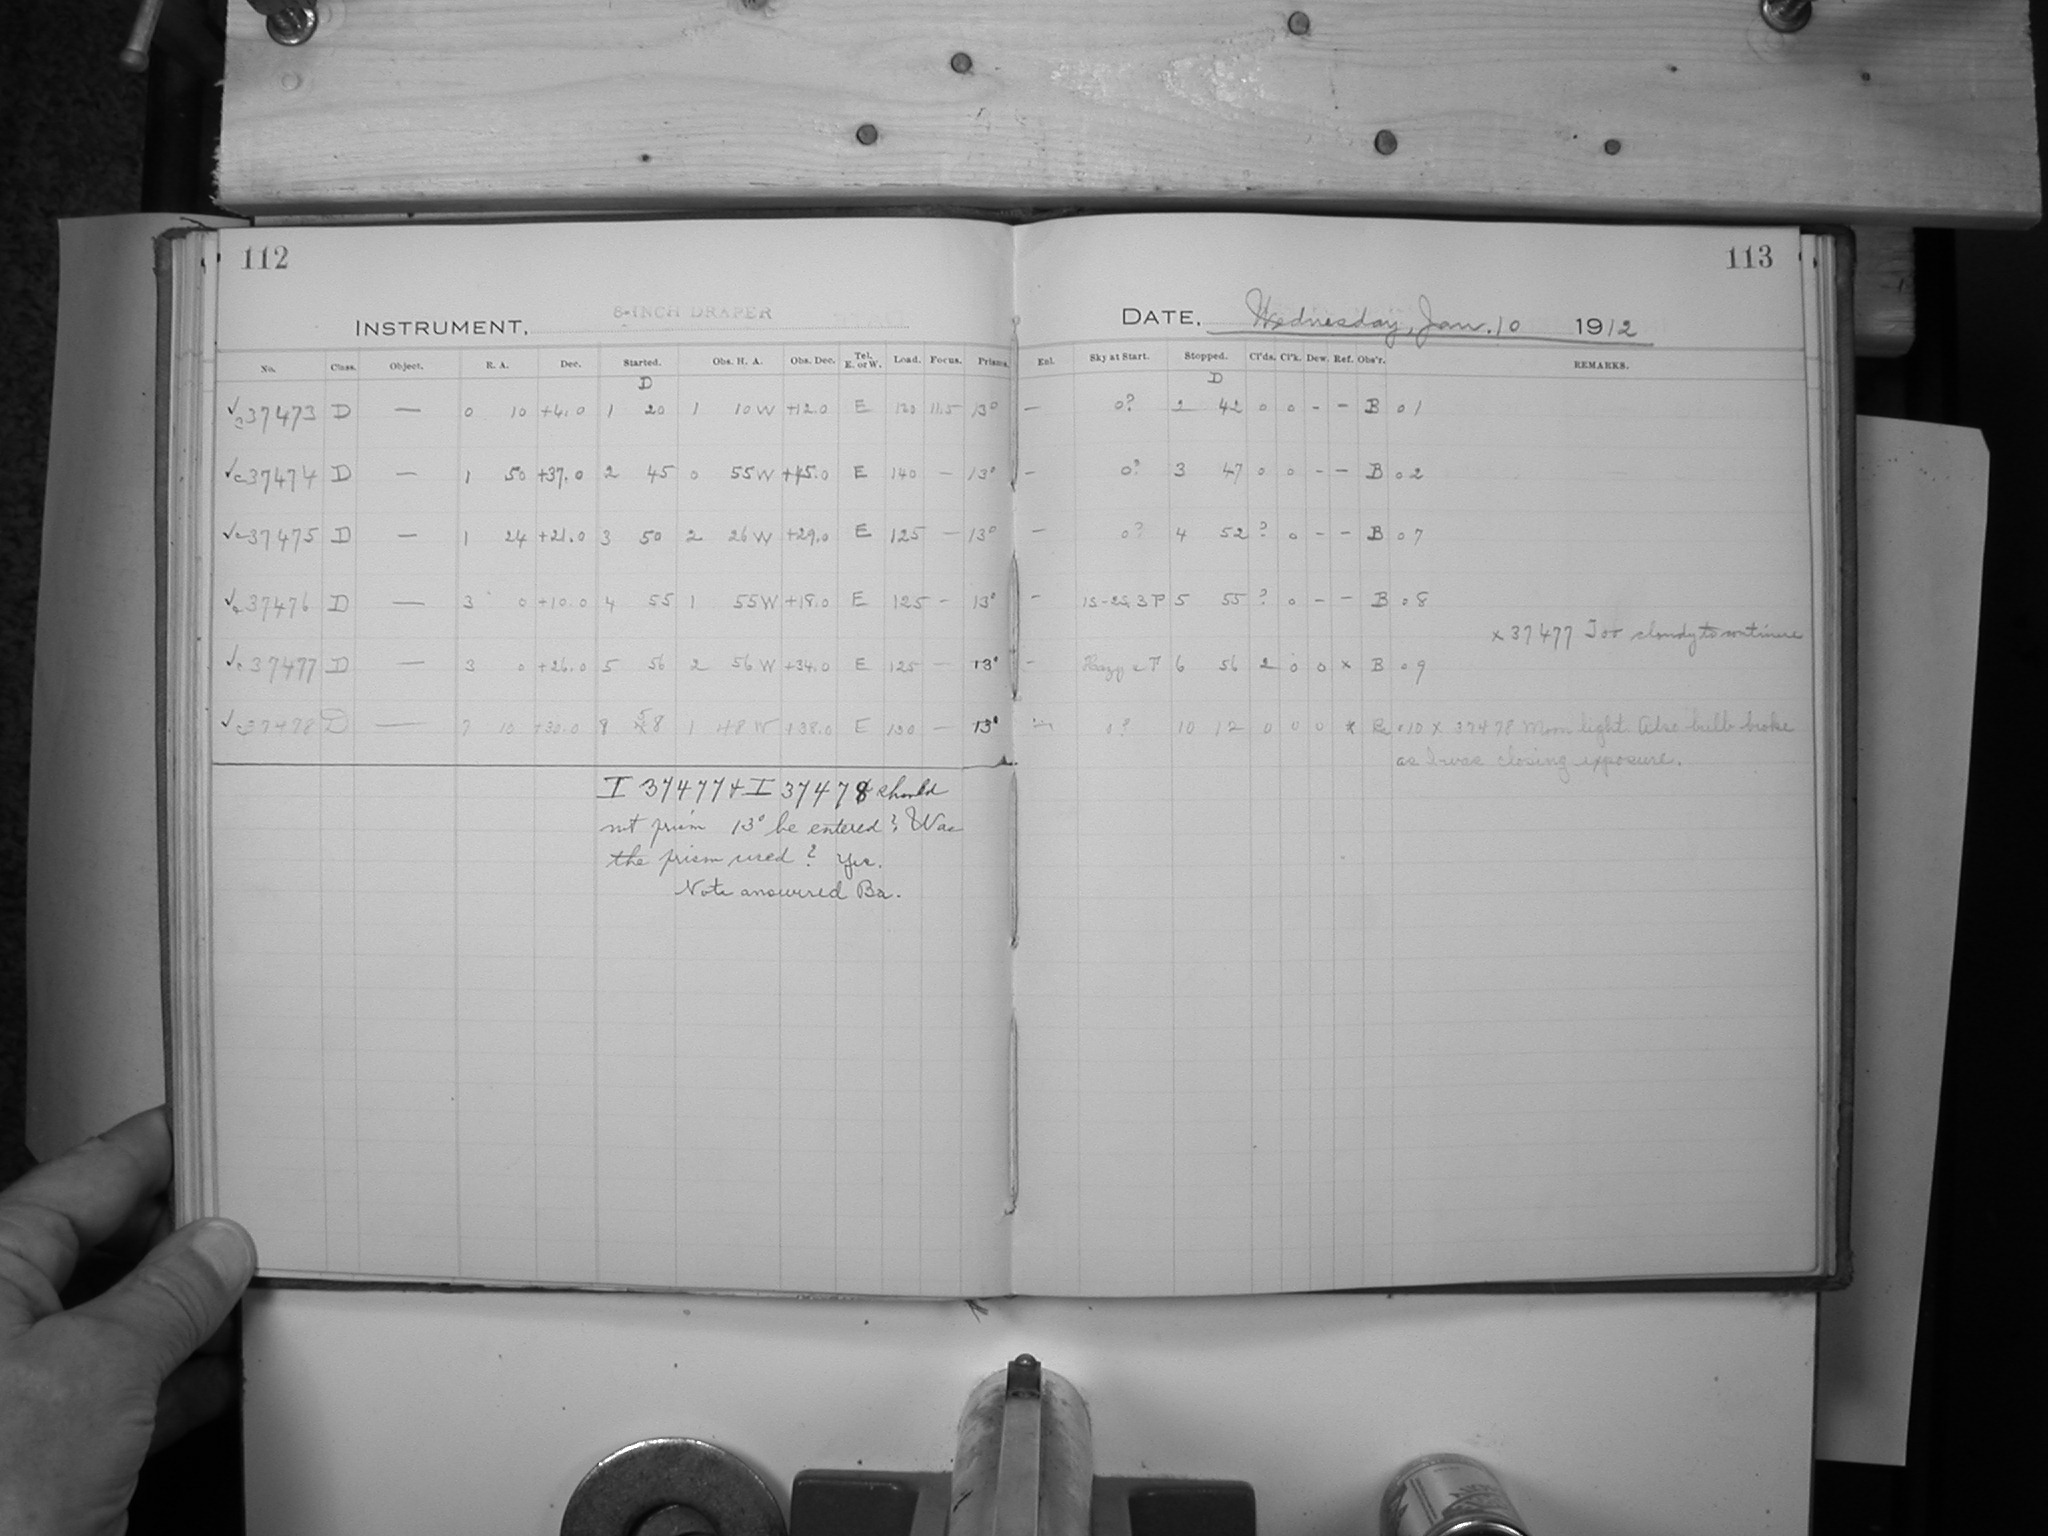 112
113
INSTRUMENT, 8-INCH DRAPER
DATE, Wednesday, Jan. 10 1912
No. Class. Object. R. A. Dec. Started. Obs. H. A. Obs. Dec. Tel. E. or W. Load. Focus. Prisms. Enl. Sky at Start. Stopped. Cl'ds. Cl'k. Dew. Ref. Obs'r. REMARKS.
D D
✓ 37473 D — 0 10 +4.0 1 20 1 10 W +12.0 E 120 11.5 13° — 0? 2 42 0 0 - - B 01
✓ 37474 D — 1 50 +37.0 2 45 0 55 W +45.0 E 140 - 13° - 0? 3 47 0 0 - - B 02
✓ 37475 D — 1 24 +21.0 3 50 2 26 W +29.0 E 125 - 13° — 0? 4 52 ? 0 - - B 07
✓ 37476 D — 3 0 +10.0 4 55 1 55 W +18.0 E 125 - 13° - 5 55 ? 0 - - B 08
x 37477 Too cloudy to continue
✓ 37477 D — 3 0 +26.0 5 56 2 56 W +34.0 E 125 - 13° - Hazy & P 6 56 2 0 0 x B 09
✓ 37478 D — 7 10 +30.0 8 58 1 48 W +38.0 E 130 - 13° 0? 10 12 0 0 0 x Ba 010 x 37478 Moon light. Also bulb broke
as I was closing exposure.
I 37477 & I 37478 should
not prism 13° be entered? Was
the prism used? Yes.
Note answered Ba.